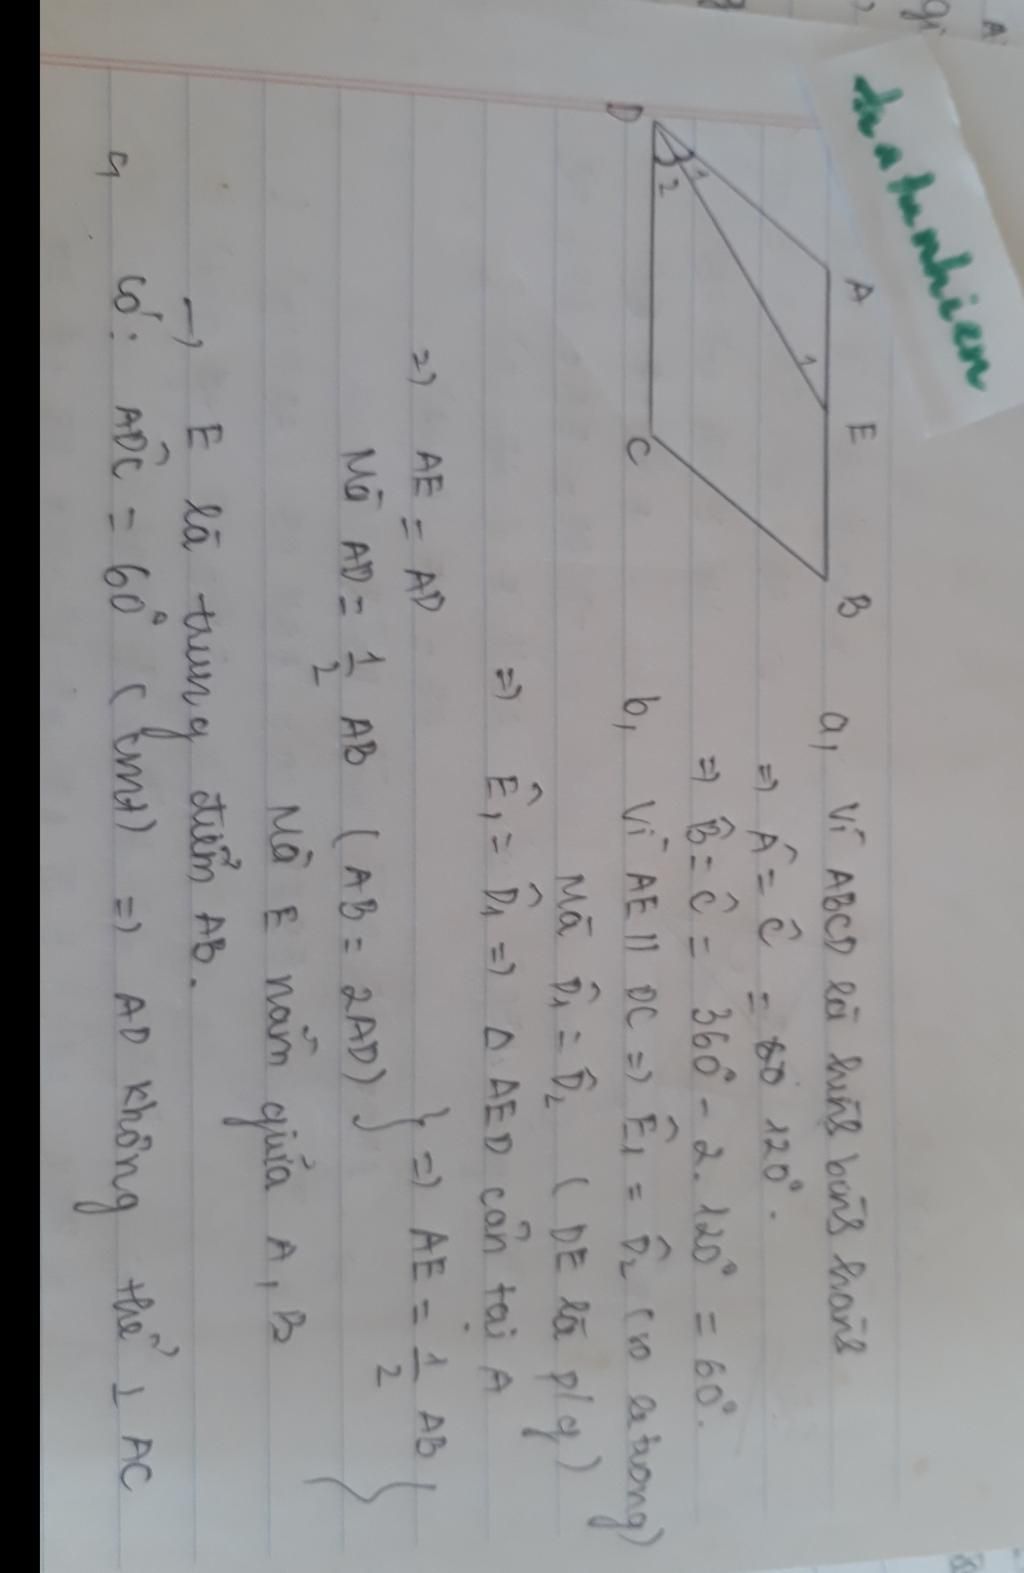 tratunhien
A E B
1
1
2
D C
a, Vì ABCD là hình bình hành
=> Â = Ĉ = 120°.
=> B̂ = Ĉ = 360° - 2. 120° = 60°.
b, Vì AE // DC => Ê₁ = D̂₂ (so le trong)
Mà D̂₁ = D̂₂ ( DE là p/g )
=> Ê₁ = D̂₁ => Δ AED cân tại A
=) AE = AD
Mà AD = 1/2 AB ( AB = 2AD) } => AE = 1/2 AB
Mà E nằm giữa A, B }
→ E là trung điểm AB.
c, Có: ADC = 60° ( cmt) => AD không thể ⊥ AC